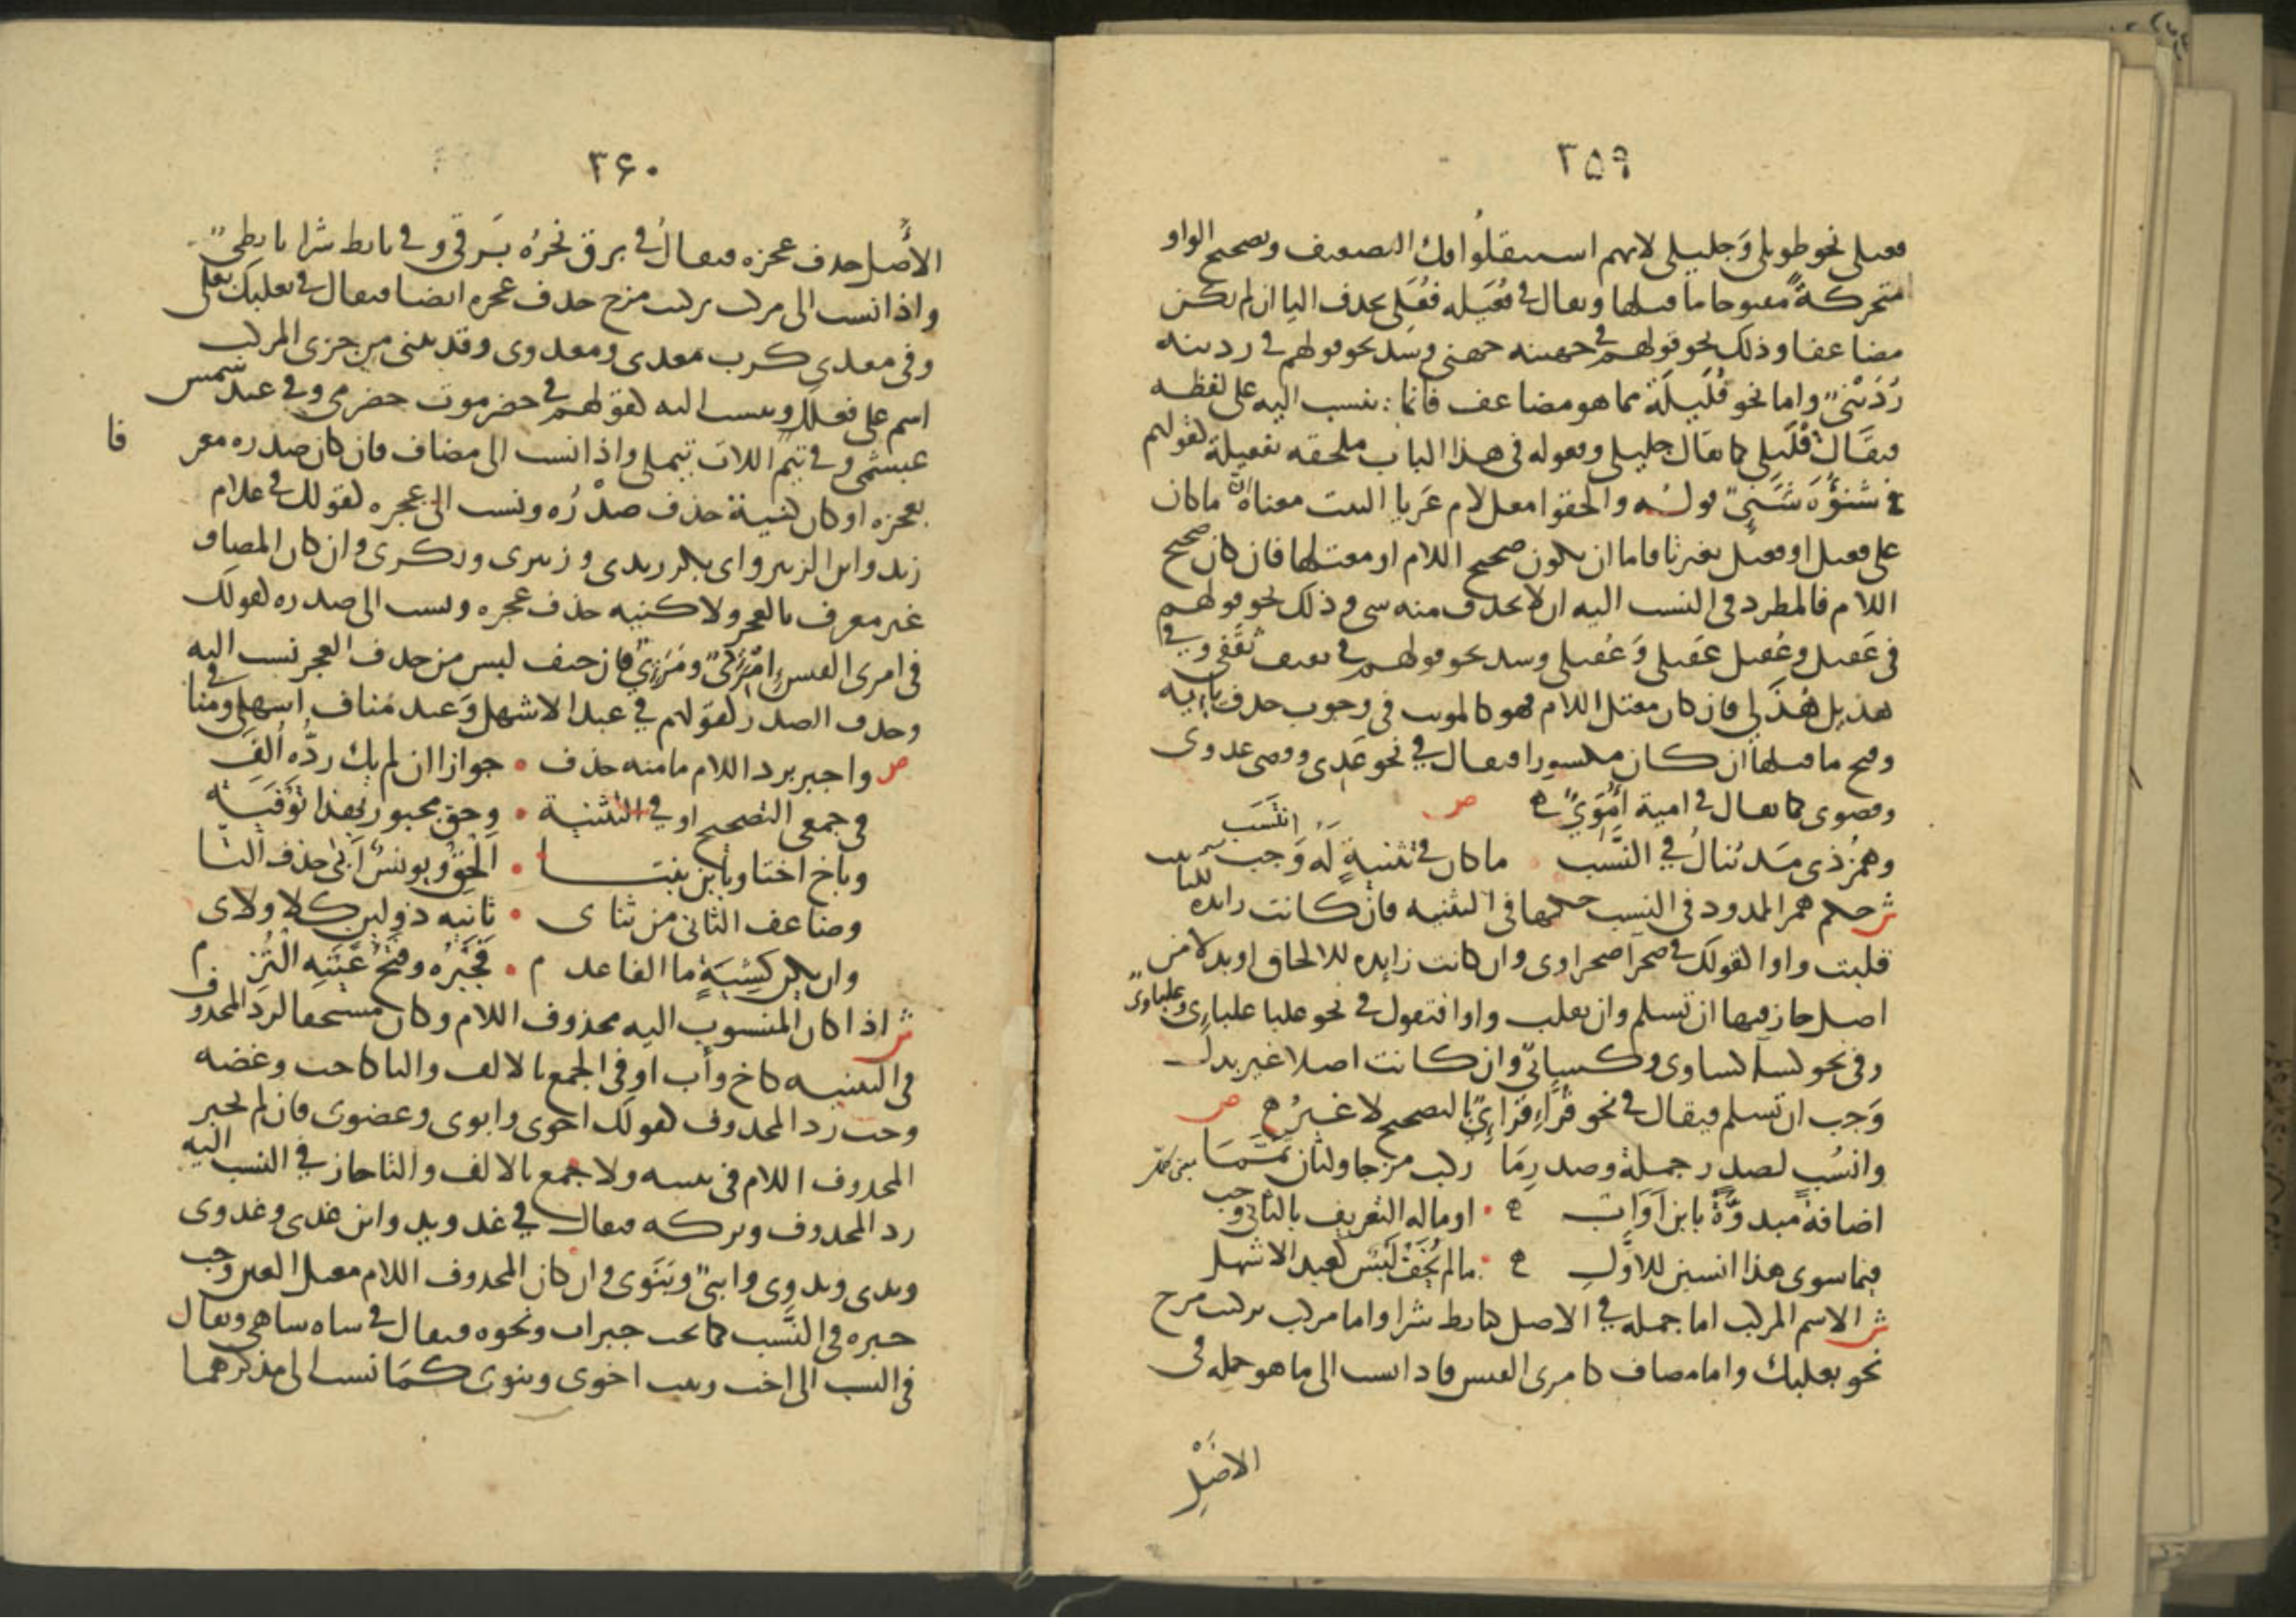 ٣٥٩
فعيلى نحو طويلى وجليلى لانهم استثقلوا فك التضعيف وتصحيح الواو
متحركة مفتوحا ما قبلها ويقال في فعيله فعلى بحذف اليا ان لم يكن
مضاعفا وذلك نحو قولهم في جهينه جهنى وشذ نحو قولهم في ردينه
رُدَيْنىّ واما نحو قُلَيلَة مما هو مضاعف فانما ينسب اليه على لفظه
فيقال قُلَيلى كما يقال جليلى وقوله فى هذا الباب ملحقه بفعيلة لقولهم
في شنوءَة شَنَئِىّ قوله والحقوا معل لام عَرِيا البيت معناه ان ما كان
على فعيل او فعيل بغير تا فاما ان يكون صحيح اللام او معتلها فان كان صحيح
اللام فالمطرد فى النسب اليه ان لا يحذف منه شى وذلك نحو قولهم
فى عَقيل وعُقيل عَقيلى وَعُقيلى وشذ نحو قولهم في ثقيف ثقفى وفي
هذيل هُذَلى فان كان معتل اللام فهو كالمونث فى وجوب حذف يايه
وفتح ما قبلها ان كان مكسورا فيقال في نحو عَدِى وقصى عدوى
وقصوى كما يقال في امية أُمَوِىّ ص
وهَمْزُ ذى مَد يُنالُ في النَّسَب ما كان في تثنيةٍ لَه انتَسَب وَجب
ش حكم همز الممدود فى النسب حكمها فى التثنيه فان كانت زايده للتانيث
قلبت واوا لقولك في صحرآ صحراوى وان كانت زايده للالحاق او بدلا من
اصل جاز فيها ان تسلم وان تقلب واوا فتقول في نحو علبا علباءى وعلباوى
وفى نحو كسآ كساوى وكسائى وان كانت اصلا غير بدل
وَجب ان تسلم فيقال في نحو قُرَّاء قُرَّائِىّ بالتصحيح لا غيرُ ص
وانسُب لصدر جملة وصدر مَا ركب مزجا ولثان تَمَّمَا
اضافةً مبدوّةً بابن او اب او ماله التعريف بالثانى وجب
فيما سوى هذا انسبن للاوّل ما لم يُخَفْ لَبْس كعبد الاشهل
ش الاسم المركب اما جمله في الاصل كتابط شرا واما مركب تركيب مزج
نحو بعلبك واما مضاف كامرى القيس فاذا نسب الى ما هو جمله فى
الاصل
٣٦٠
الأصل حذف عجزه فيقالُ في برق نحرُه بَرقى وفي تابط شرا تابطىّ
واذا نسب الى مركب تركيب مزج حذف عجزه ايضا فيقال في بعلبك بعلى
وفى معدي كرب معدى ومعدوى وقد يبنى من جزى المركب
اسم على فعلل وينسب اليه كقولهم في حضرموت حضرمى وفي عبد شمس
عبشمى وفي تيم اللات تيملى واذا نسب الى مضاف فان كان صدره معرفا
بعجزه او كان كنية حذف صدْرُه ونسب الى عجزه كقولك في غلام
زيد وابن الزبير وابى بكر زيدى وزبيرى وبكرى وان كان المضاف
غير معرف بالعجز ولا كنيه حذف عجزه ونسب الى صدره كقولك
فى امرى القيس امْرِئىّ ومَرَئىّ فان خيف لبس من حذف العجز نسب اليه
وحذف الصدر كقولهم في عبد الاشهل وَعبد مُناف اشهلى ومنافى
ص واجبر برد اللام ما منه حذف • جوازا ان لم يك ردُّه أُلِفَ
فى جمعى التصحيح او في التثنية • وحق مجبور بهذا تَوْفِيَه
وباخ اختا وبابن بنتا • أَلْحِقْ ويونسٌ أَبَى حذف التَّا
وضاعف الثانى من ثناى • ثانيه ذو لين كلا ولائى
وان يكن كشِيَةٍ ما الفا عدم • فجَبْرُه وفتحُ عَيْنِه التُزِم
ش اذا كان المنسوب اليه محذوف اللام وكان مستحقا لرد المحذوف
فى التثنيه كاخ وأب او فى الجمع بالالف والتا كاخت وعضه
وجب رد المحذوف كقولك اخوى وابوى وعضوى فان لم يجبر
المحذوف اللام فى تثنيه ولا جمع بالالف والتا جاز في النسب اليه
رد المحذوف وتركه فيقال في غد ويد وابن غدى وغدوى
ويدى ويدوى وابنىّ وبَنَوى وان كان المحذوف اللام معتل العين وجب
جبره فى النَّسب كما يجب جبراب ونحوه فيقال في شاه شاهى ويقال
فى النسب الى اخت وبنت اخوى وبنوى كمَا نسب الى مذكرهما